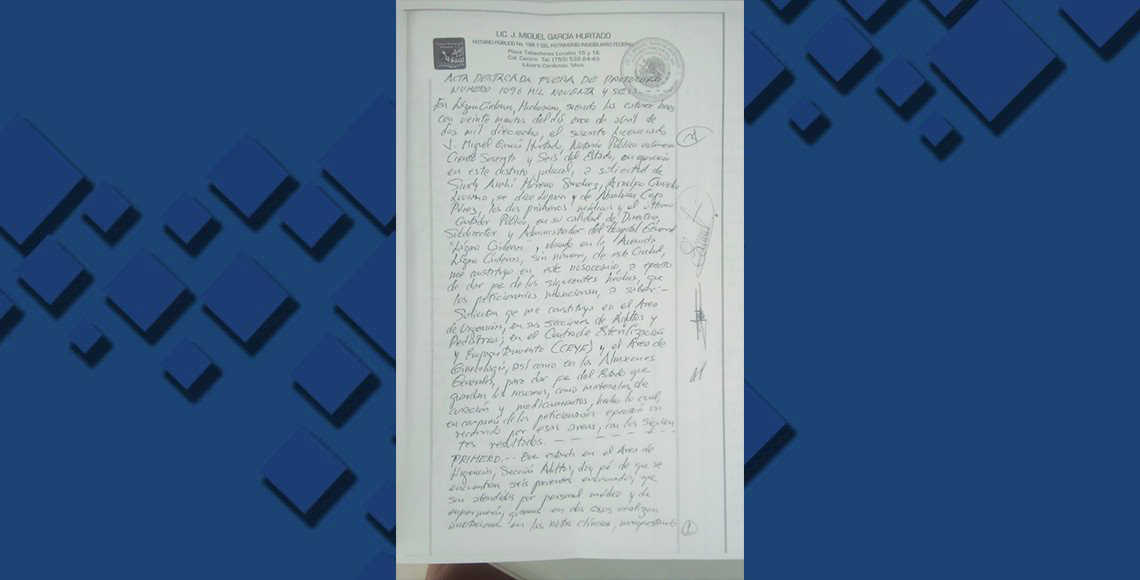 LIC. J. MIGUEL GARCÍA HURTADO
NOTARIO PÚBLICO No. 166 Y DEL PATRIMONIO INMOBILIARIO FEDERAL
Plaza Tabachines Locales 15 y 16
Col. Centro Tel. (753) 532-24-43
Lázaro Cárdenas, Mich.
ACTA DESTACADA FUERA DE PROTOCOLO
NUMERO 1096 MIL NOVENTA Y SEIS
En Lázaro Cárdenas, Michoacán, siendo las catorce horas
con veinte minutos del día once de abril de
dos mil dieciocho, el suscrito Licenciado
J. Miguel García Hurtado, Notario Público número
Ciento Sesenta y Seis del Estado, en ejercicio
en este distrito judicial, a solicitud de
Sindy Moreno Sánchez, Arnulfo
se dice Lupian y de Abraham
Pérez, los dos primeros médicos y el último
Contador Público, en su calidad de Directora,
Subdirector y Administrador del Hospital General
"Lázaro Cárdenas", ubicado en la Avenida
Lázaro Cárdenas, sin número, de esta Ciudad,
me constituyo en este nosocomio, a efecto
de dar fe de los siguientes hechos, que
los peticionarios mencionan, a saber:-
Solicitan que me constituya en el Area
de Urgencias, en sus secciones de Adultos y
Pediatría; en el Central de Esterilización
y (CEYE) y el Area de
Ginecología, así como en los Almacenes
Generales, para dar fe del Estado que
guardan los mismos, como materiales de
curación y medicamentos, hecho lo cual,
en compañía de los peticionarios efectúo un
recorrido por esas áreas, con los siguien
tes resultados. - - - - - -
PRIMERO.- Que estando en el Area de
Urgencias, Sección Adultos, doy fé de que se
encuentran seis pacientes encamados, que
son atendidos por personal médico y de
enfermería, quienes en dos casos realizan
anotaciones en las notas clínicas,